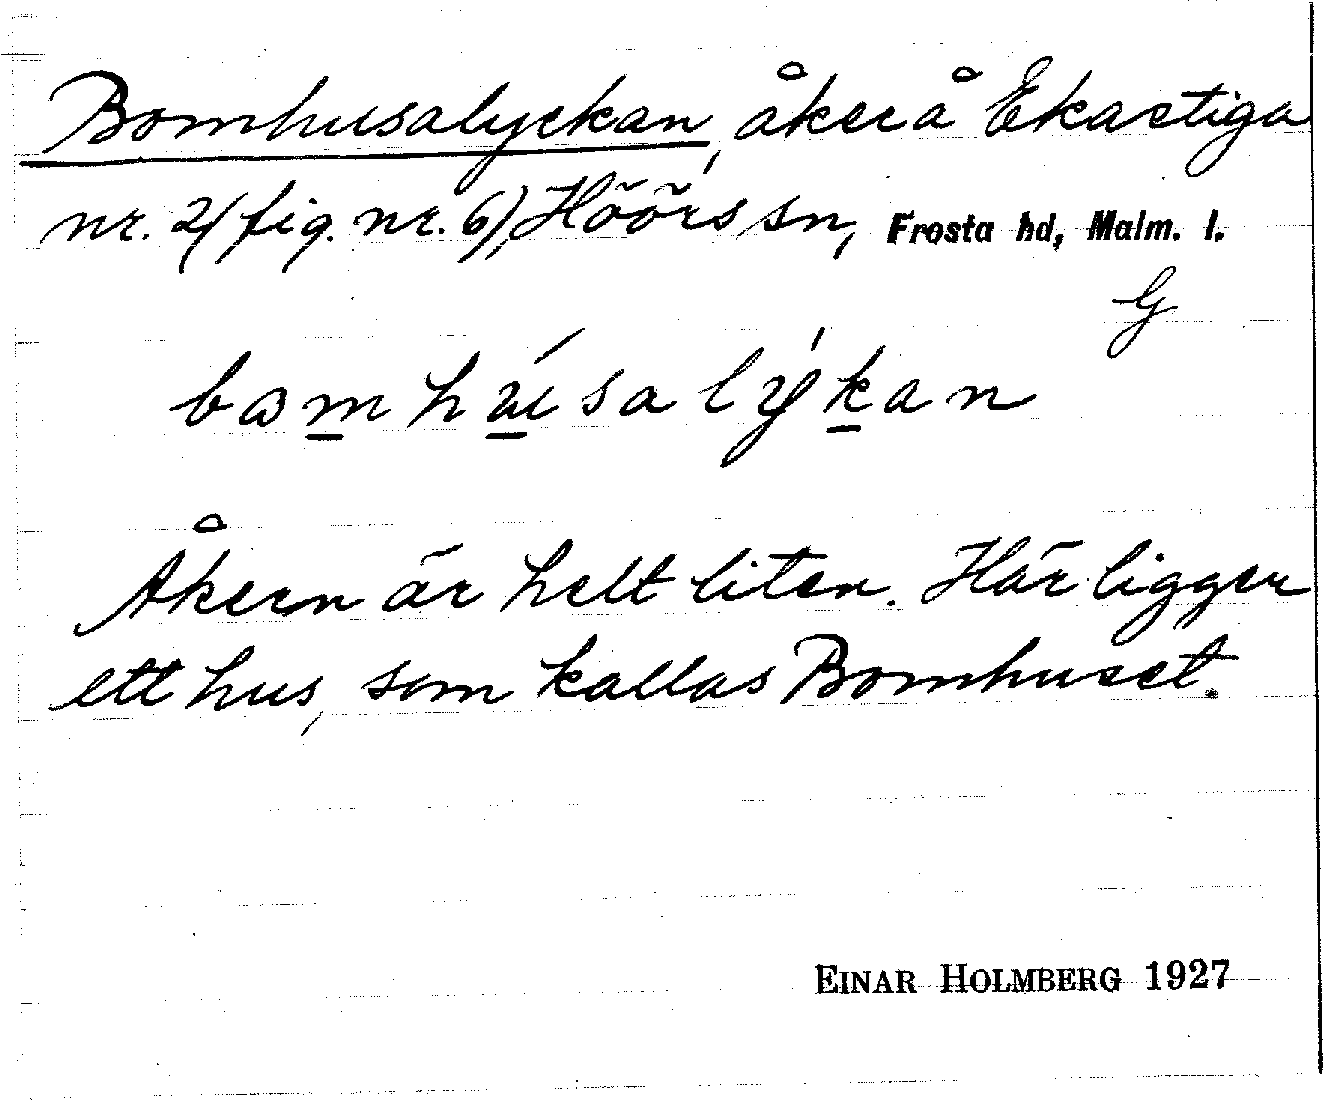 Bomhusalyckan, åker å Ekastiga
nr. 2 (fig. nr. 6), Höörs sn, Frosta hd, Malm. l.
G
Åkern är helt liten. Här ligger
ett hus, som kallas Bomhuset.
EINAR HOLMBERG 1927